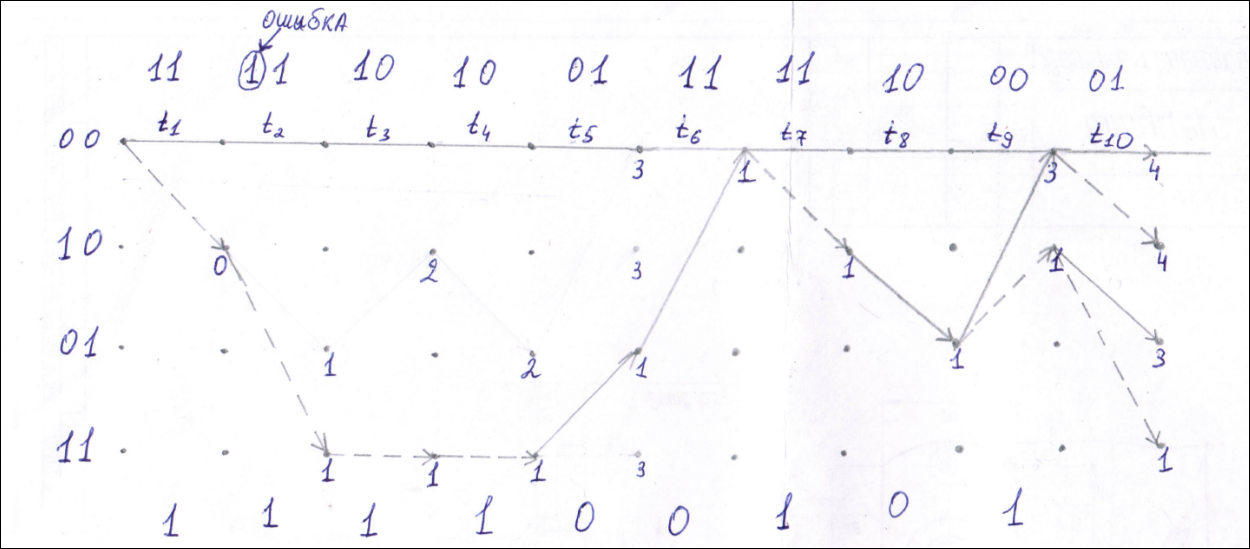 ошибка
11 11 10 10 01 11 11 10 00 01
t1 t2 t3 t4 t5 t6 t7 t8 t9 t10
00
3 1 3 4
10
0 2 3 1 1 4
01
1 2 1 1 3
11
1 1 1 3 1
1 1 1 1 0 0 1 0 1